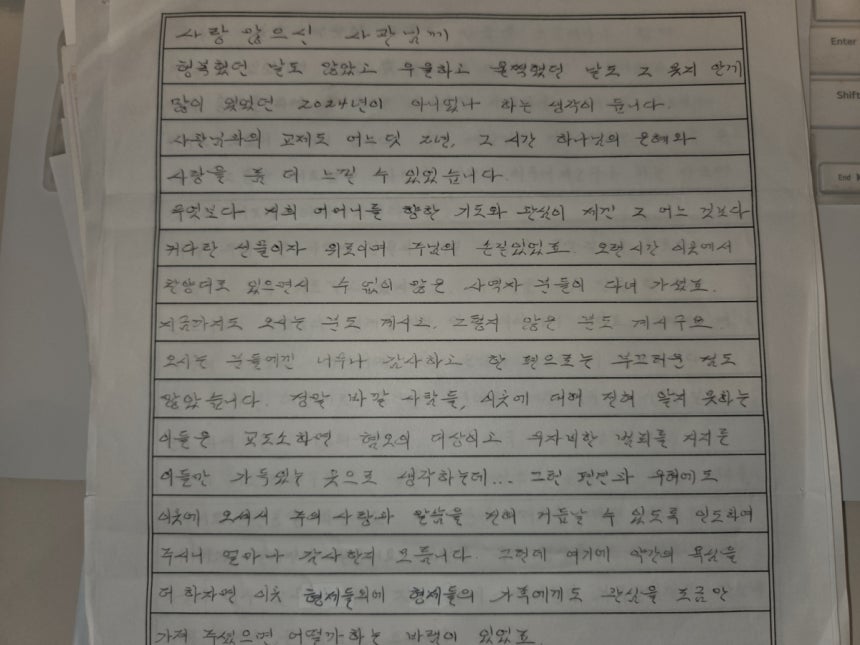 사랑 많으신 사관님께
행복했던 날도 많았고 우울하고 움찍했던 날도 그 못지 않게
많이 있었던 2024년이 아니었나 하는 생각이 듭니다.
사관님과의 교제도 어느 덧 2년, 그 시간 하나님의 은혜와
사랑을 좀 더 느낄 수 있었습니다.
무엇보다 저희 어머니를 향한 기도와 관심이 제겐 그 어느 것보다
커다란 선물이자 위로이며 주님의 손길이었었죠. 오랜시간 이곳에서
찬양대로 있으면서 수 없이 많은 사역자 분들이 다녀 가셨죠.
지금까지도 오시는 분도 계시고, 그렇지 않은 분도 계시구요.
오시는 분들에겐 너무나 감사하고 한 편으로는 부끄러운 점도
많았습니다. 정말 바깥 사람들, 이곳에 대해 전혀 알지 못하는
이들은 교도소하면 혐오의 대상이고 무자비한 범죄를 저지른
이들만 가득있는 곳으로 생각하는데... 그런 편견과 우려에도
이곳에 오셔서 주의 사랑과 말씀을 전해 거듭날 수 있도록 인도하여
주시니 얼마나 감사한지 모릅니다. 그런데 여기에 약간의 욕심을
더 하자면 이곳 형제들외에 형제들의 가족에게도 관심을 조금만
가져 주셨으면 어떨까하는 바램이 있었죠